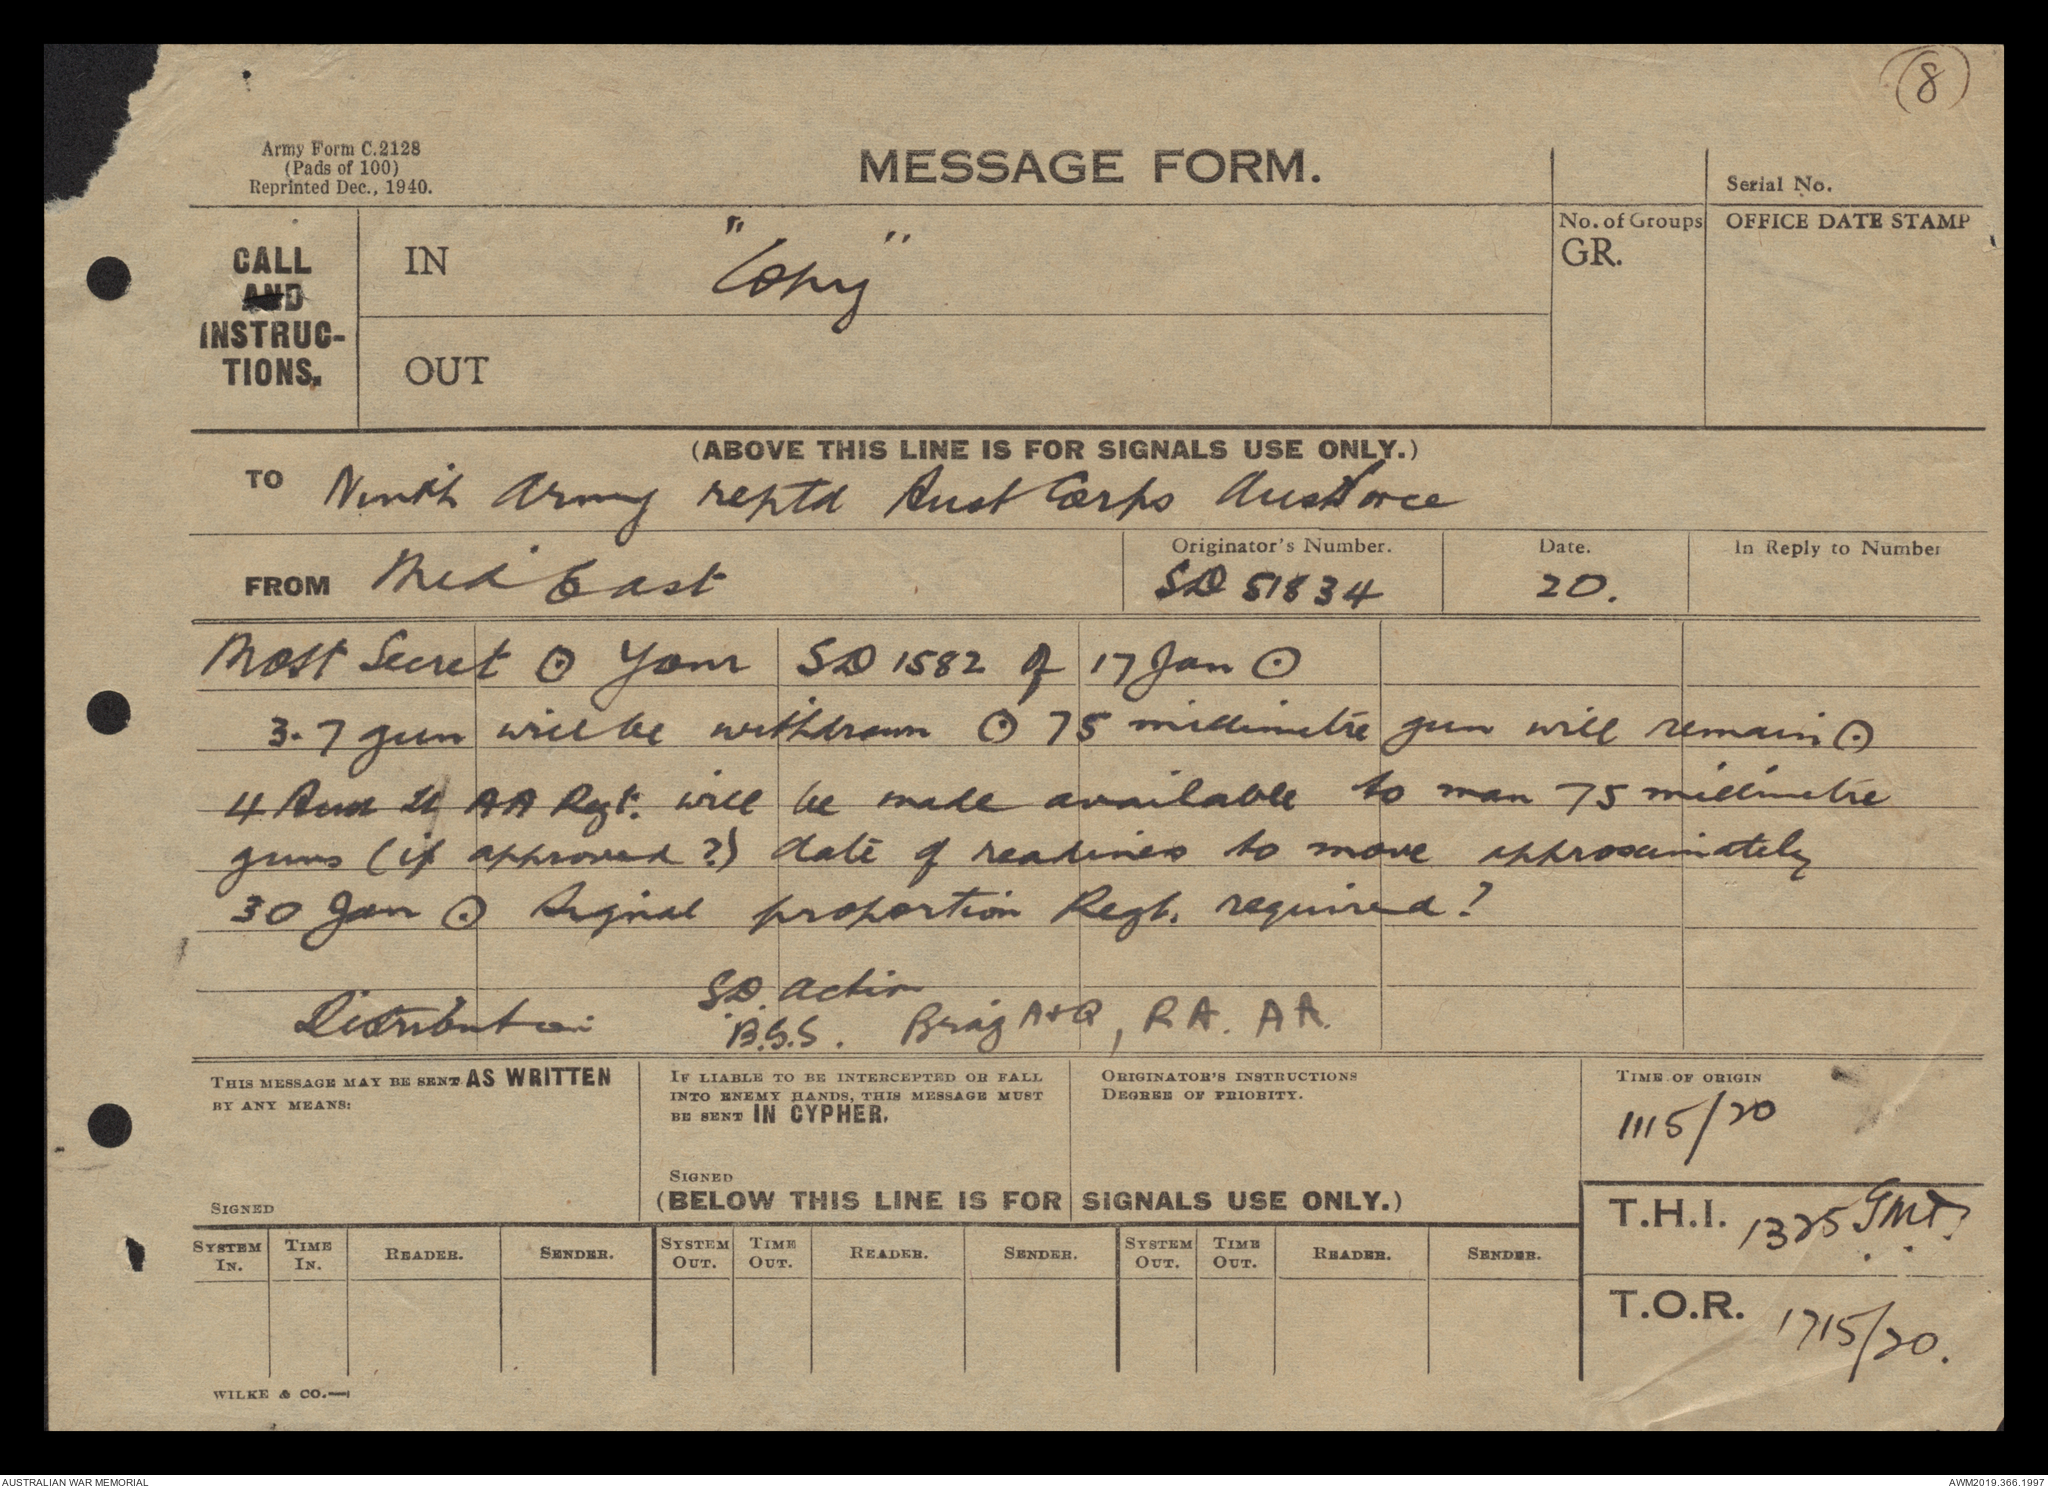 (8)
Army Form C.2128
(Pads of 100)
Reprinted Dec., 1940.
MESSAGE FORM.
Serial No.
CALL AND INSTRUC-TIONS.
IN
"Copy"
No. of Groups
GR.
OFFICE DATE STAMP
OUT
(ABOVE THIS LINE IS FOR SIGNALS USE ONLY.)
TO Ninth Army reptd Aust Corps Austforce
FROM Mid East
Originator's Number.
SD 51834
Date.
20.
In Reply to Number
Most Secret ⊙ Your SD 1582 of 17 Jan ⊙
3.7 gun will be withdrawn ⊙ 75 millimetre gun will remain ⊙
4 Aust Lt AA Regt. will be made available to man 75 millimetre
guns (if approved ?) date of readiness to move approximately
30 Jan ⊙ Signal proportion Regt. required?
Distribution
SD. action
B.G.S. Brig A+Q, RA. AA.
THIS MESSAGE MAY BE SENT AS WRITTEN
BY ANY MEANS:
SIGNED
IF LIABLE TO BE INTERCEPTED OR FALL
INTO ENEMY HANDS, THIS MESSAGE MUST
BE SENT IN CYPHER.
SIGNED
ORIGINATOR'S INSTRUCTIONS
DEGREE OF PRIORITY.
TIME OF ORIGIN
1115/20
(BELOW THIS LINE IS FOR SIGNALS USE ONLY.)
T.H.I. 1325 GMT?
SYSTEM IN. TIME IN. READER. SENDER. SYSTEM OUT. TIME OUT. READER. SENDER. SYSTEM OUT. TIME OUT. READER. SENDER.
T.O.R. 1715/20.
WILKE & CO.—
AUSTRALIAN WAR MEMORIAL
AWM2019.366.1997